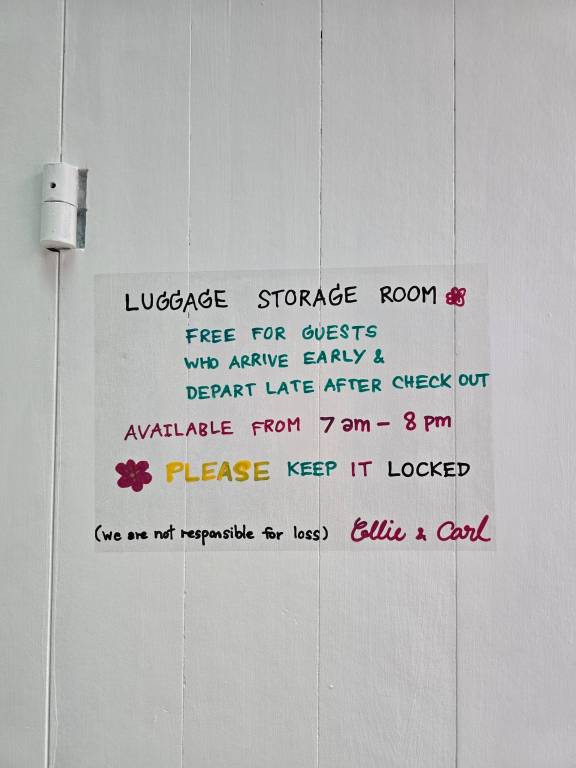 LUGGAGE STORAGE ROOM
FREE FOR GUESTS
WHO ARRIVE EARLY &
DEPART LATE AFTER CHECK OUT
AVAILABLE FROM 7 am - 8 pm
PLEASE KEEP IT LOCKED
(we are not responsible for loss) Ellie & Carl